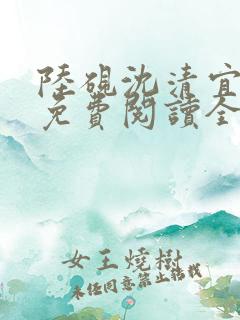 陸硯沈清宜
免費閱讀全
女王燒樹
未經同意禁止轉載